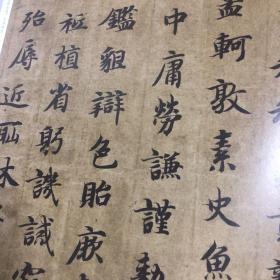 孟軻敦素史魚
中庸勞謙謹勅
鑑貌辯色貽厥
祗植省躬譏誡
殆辱近耻林